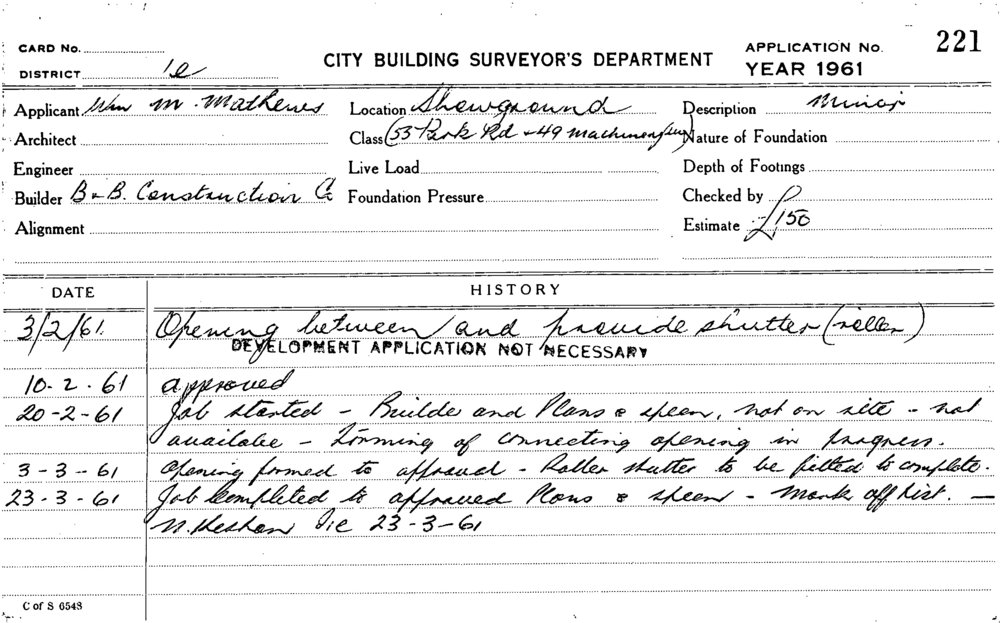 CARD No.
CITY BUILDING SURVEYOR'S DEPARTMENT
APPLICATION No. 221
YEAR 1961
DISTRICT 1e
Applicant Wm M. Mathews
Location Showground
Description Minor
Architect
Class (53 Park Rd & 49 Machinery
Nature of Foundation
Engineer
Live Load
Depth of Footings
Builder B & B. Construction Co
Foundation Pressure
Checked by
Alignment
Estimate £150
DATE HISTORY
3/2/61. Opening between and provide shutter (roller)
DEVELOPMENT APPLICATION NOT NECESSARY
10-2-61 approved
20-2-61 Job started - Builder and Plans & specn, not on site - not
available - Forming of connecting opening in progress.
3-3-61 Opening formed to approval - Roller shutter to be fitted to complete.
23-3-61 Job completed to approved Plans & specn - Mark off list. —
1e 23-3-61
C of S 6543